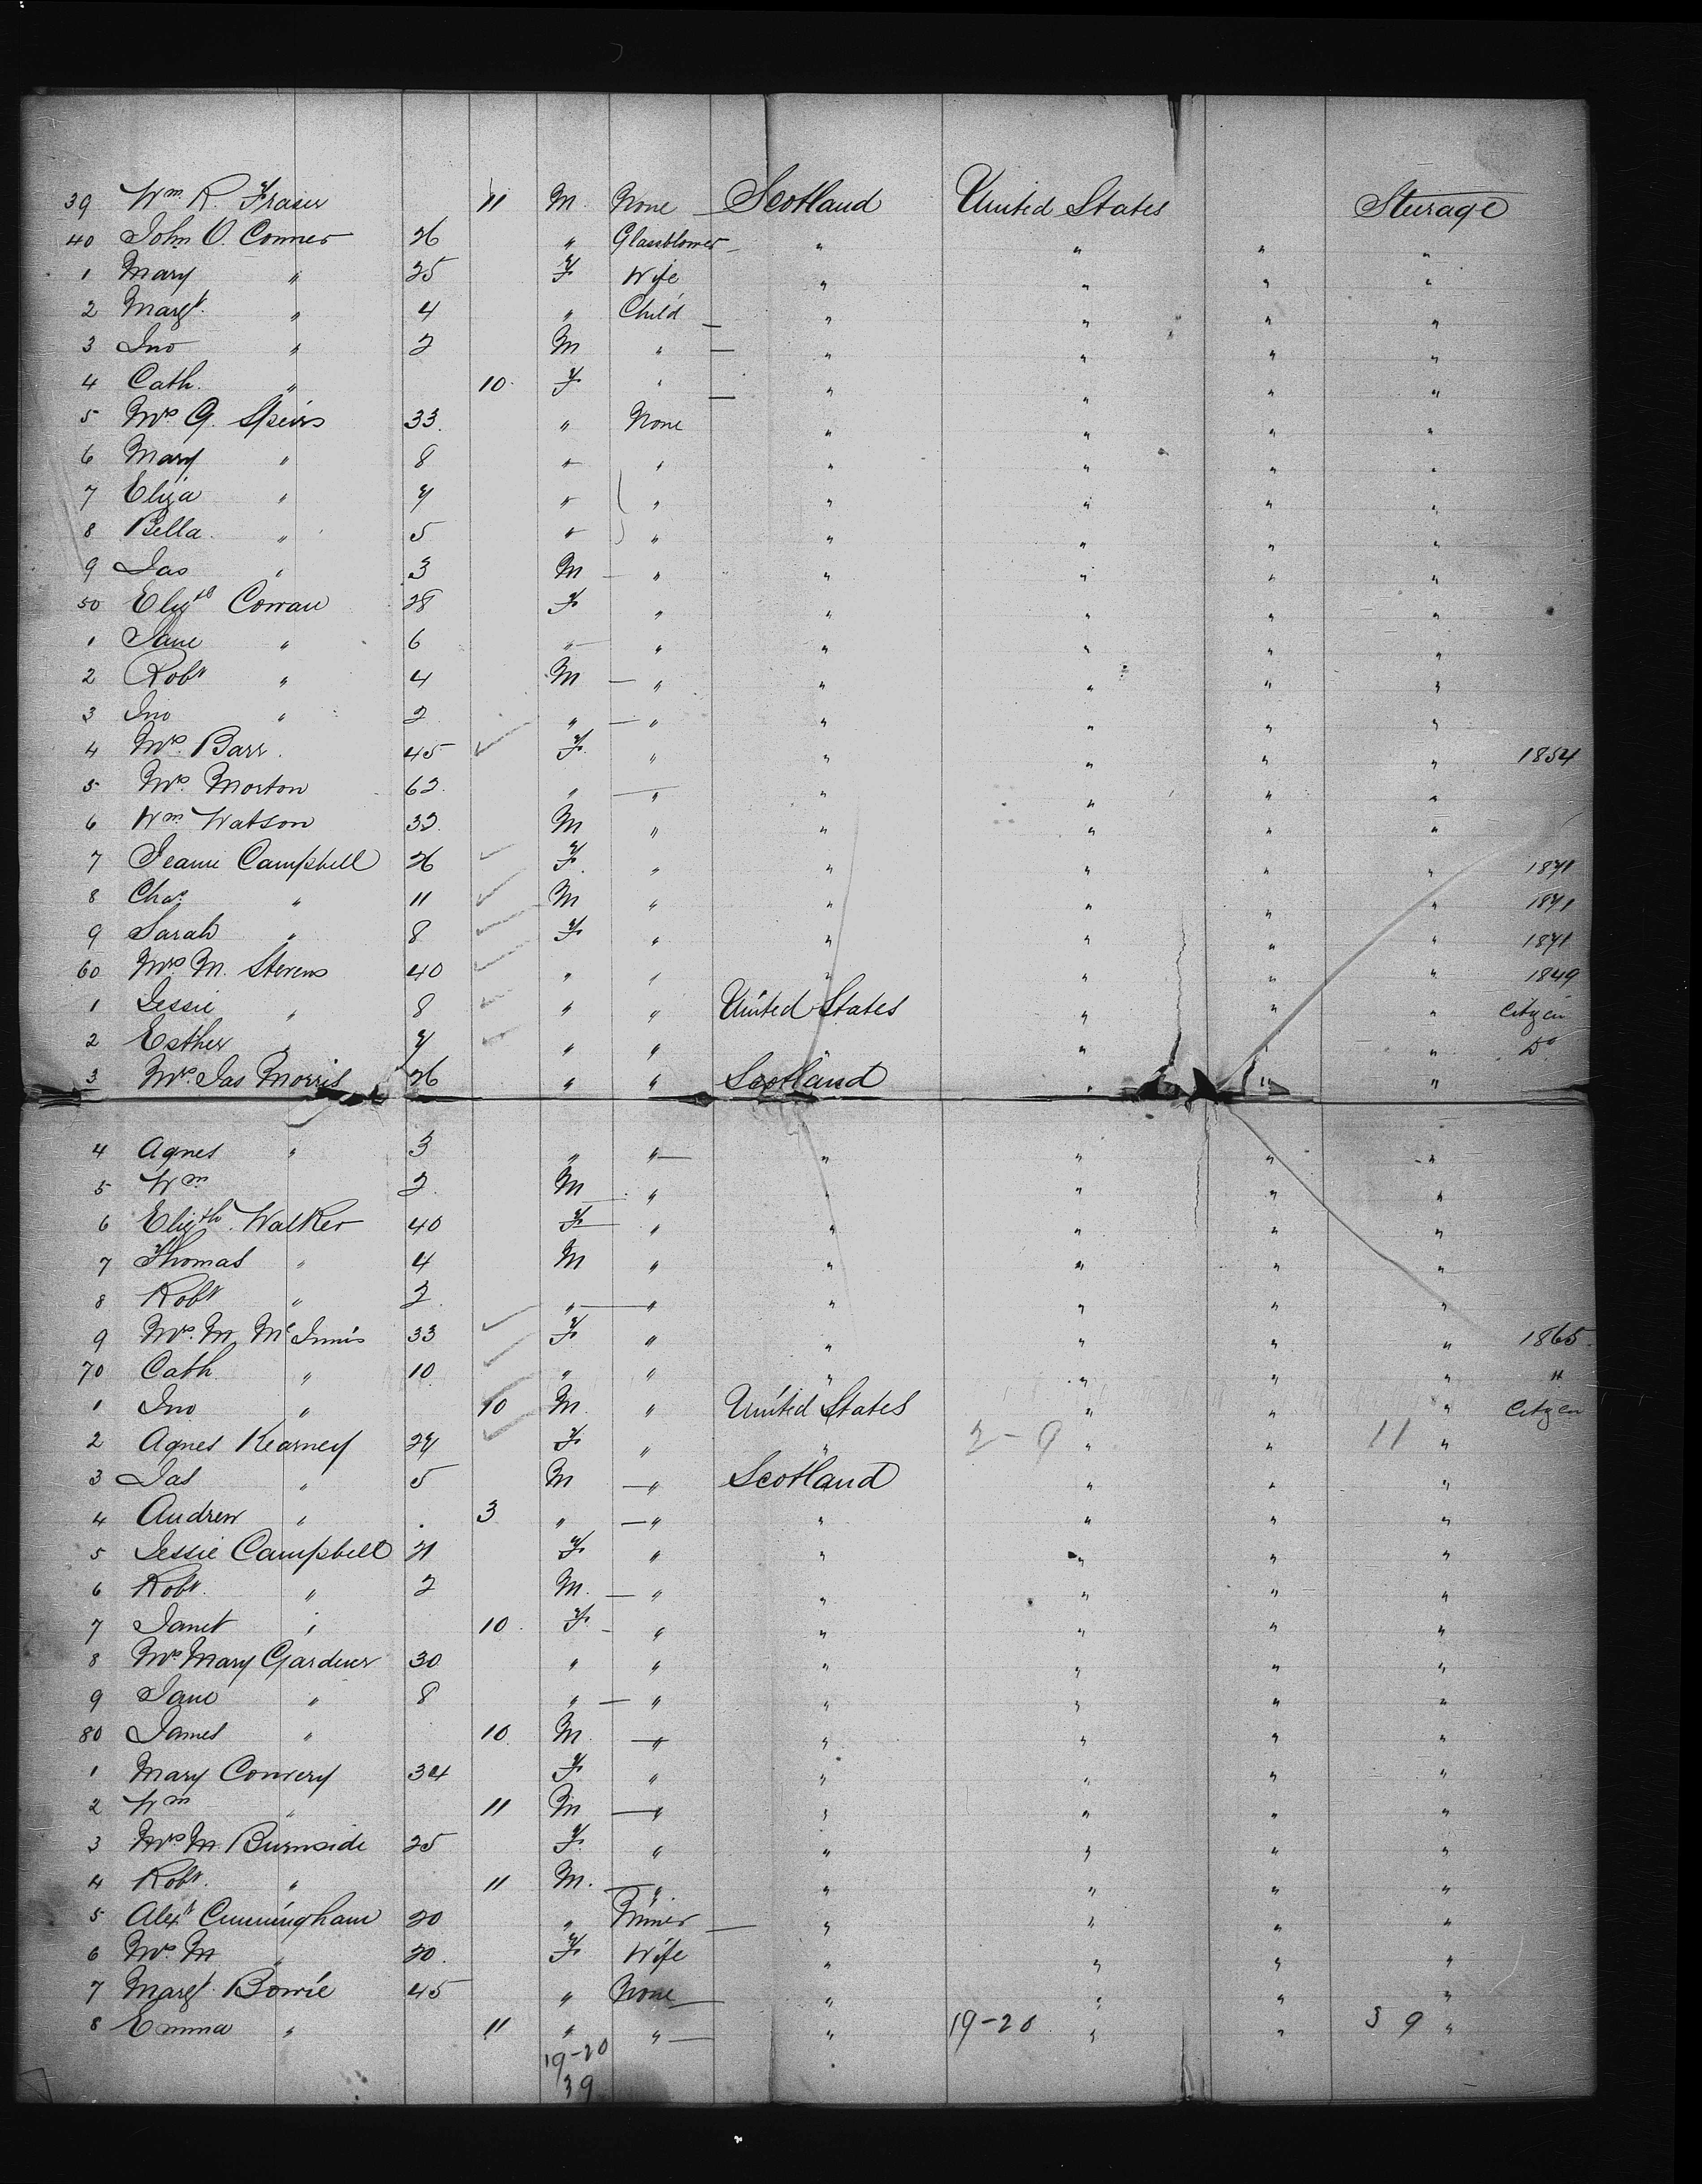 39 Wm. R. Fraser 11 M. None Scotland United States Steerage
40 John O. Conner 26 " Glassblower " " " "
1 Mary " 25 F Wife " " " "
2 Margt. " 4 " Child " " " "
3 Jno " 2 M " " " " "
4 Cath. " 10 F " " " " "
5 Mrs G. Speirs 33 " None " " " "
6 Mary " 8 " " " " " "
7 Eliza " 7 " " " " " "
8 Bella " 5 " " " " " "
9 Jas " 3 M " " " " "
50 Elizth Cowan 28 F " " " " "
1 Jane " 6 " " " " " "
2 Robt " 4 M " " " " "
3 Jno " 2 " " " " " "
4 Mrs. Barr 45 F. " " " " " 1854
5 Mrs. Morton 62 " " " " " "
6 Wm Watson 33 M " " " " "
7 Jeanie Campbell 26 F. " " " " " 1871
8 Chas " 11 M " " " " " 1871
9 Sarah " 8 F " " " " " 1871
60 Mrs M. Stevens 40 " " " " " " 1849
1 Jessie " 8 " " United States " " " Citizen
2 Esther " 7 " " " " " " Do
3 Mrs. Jas Morris 26 " " Scotland " " "
4 Agnes " 3 " " " " " "
5 Wm 2 M " " " " "
6 Elizth. Walker 40 F " " " " "
7 Thomas " 4 M " " " " "
8 Robt " 2 " " " " " "
9 Mrs. M. McInnis 33 F " " " " " 1865
70 Cath " 10 " " " " " " "
1 Jno " 10 M. " United States " " " Citizen
2 Agnes Kearney 27 F " " 2-9 " " 11 "
3 Jas " 5 M " Scotland " " "
4 Andrew " 3 " " " " " "
5 Jessie Campbell 21 F " " " " "
6 Robt. " 2 M. " " " " "
7 Janet " 10 F " " " " "
8 Mrs Mary Gardner 30 " " " " " "
9 Jane " 8 " " " " " "
80 James " 10 M. " " " " "
1 Mary Convery 34 F " " " " "
2 Wm " 11 M " " " " "
3 Mrs M. Burnside 25 F. " " " " "
4 Robt. " 11 M. " " " " "
5 Alexr Cunningham 20 " Miner " " " "
6 Mrs. M " 20. F Wife " " " "
7 Margt. Bowie 45 " None " " " "
8 Emma " 11 " " " 19-20 " " 39 "
19-20
39